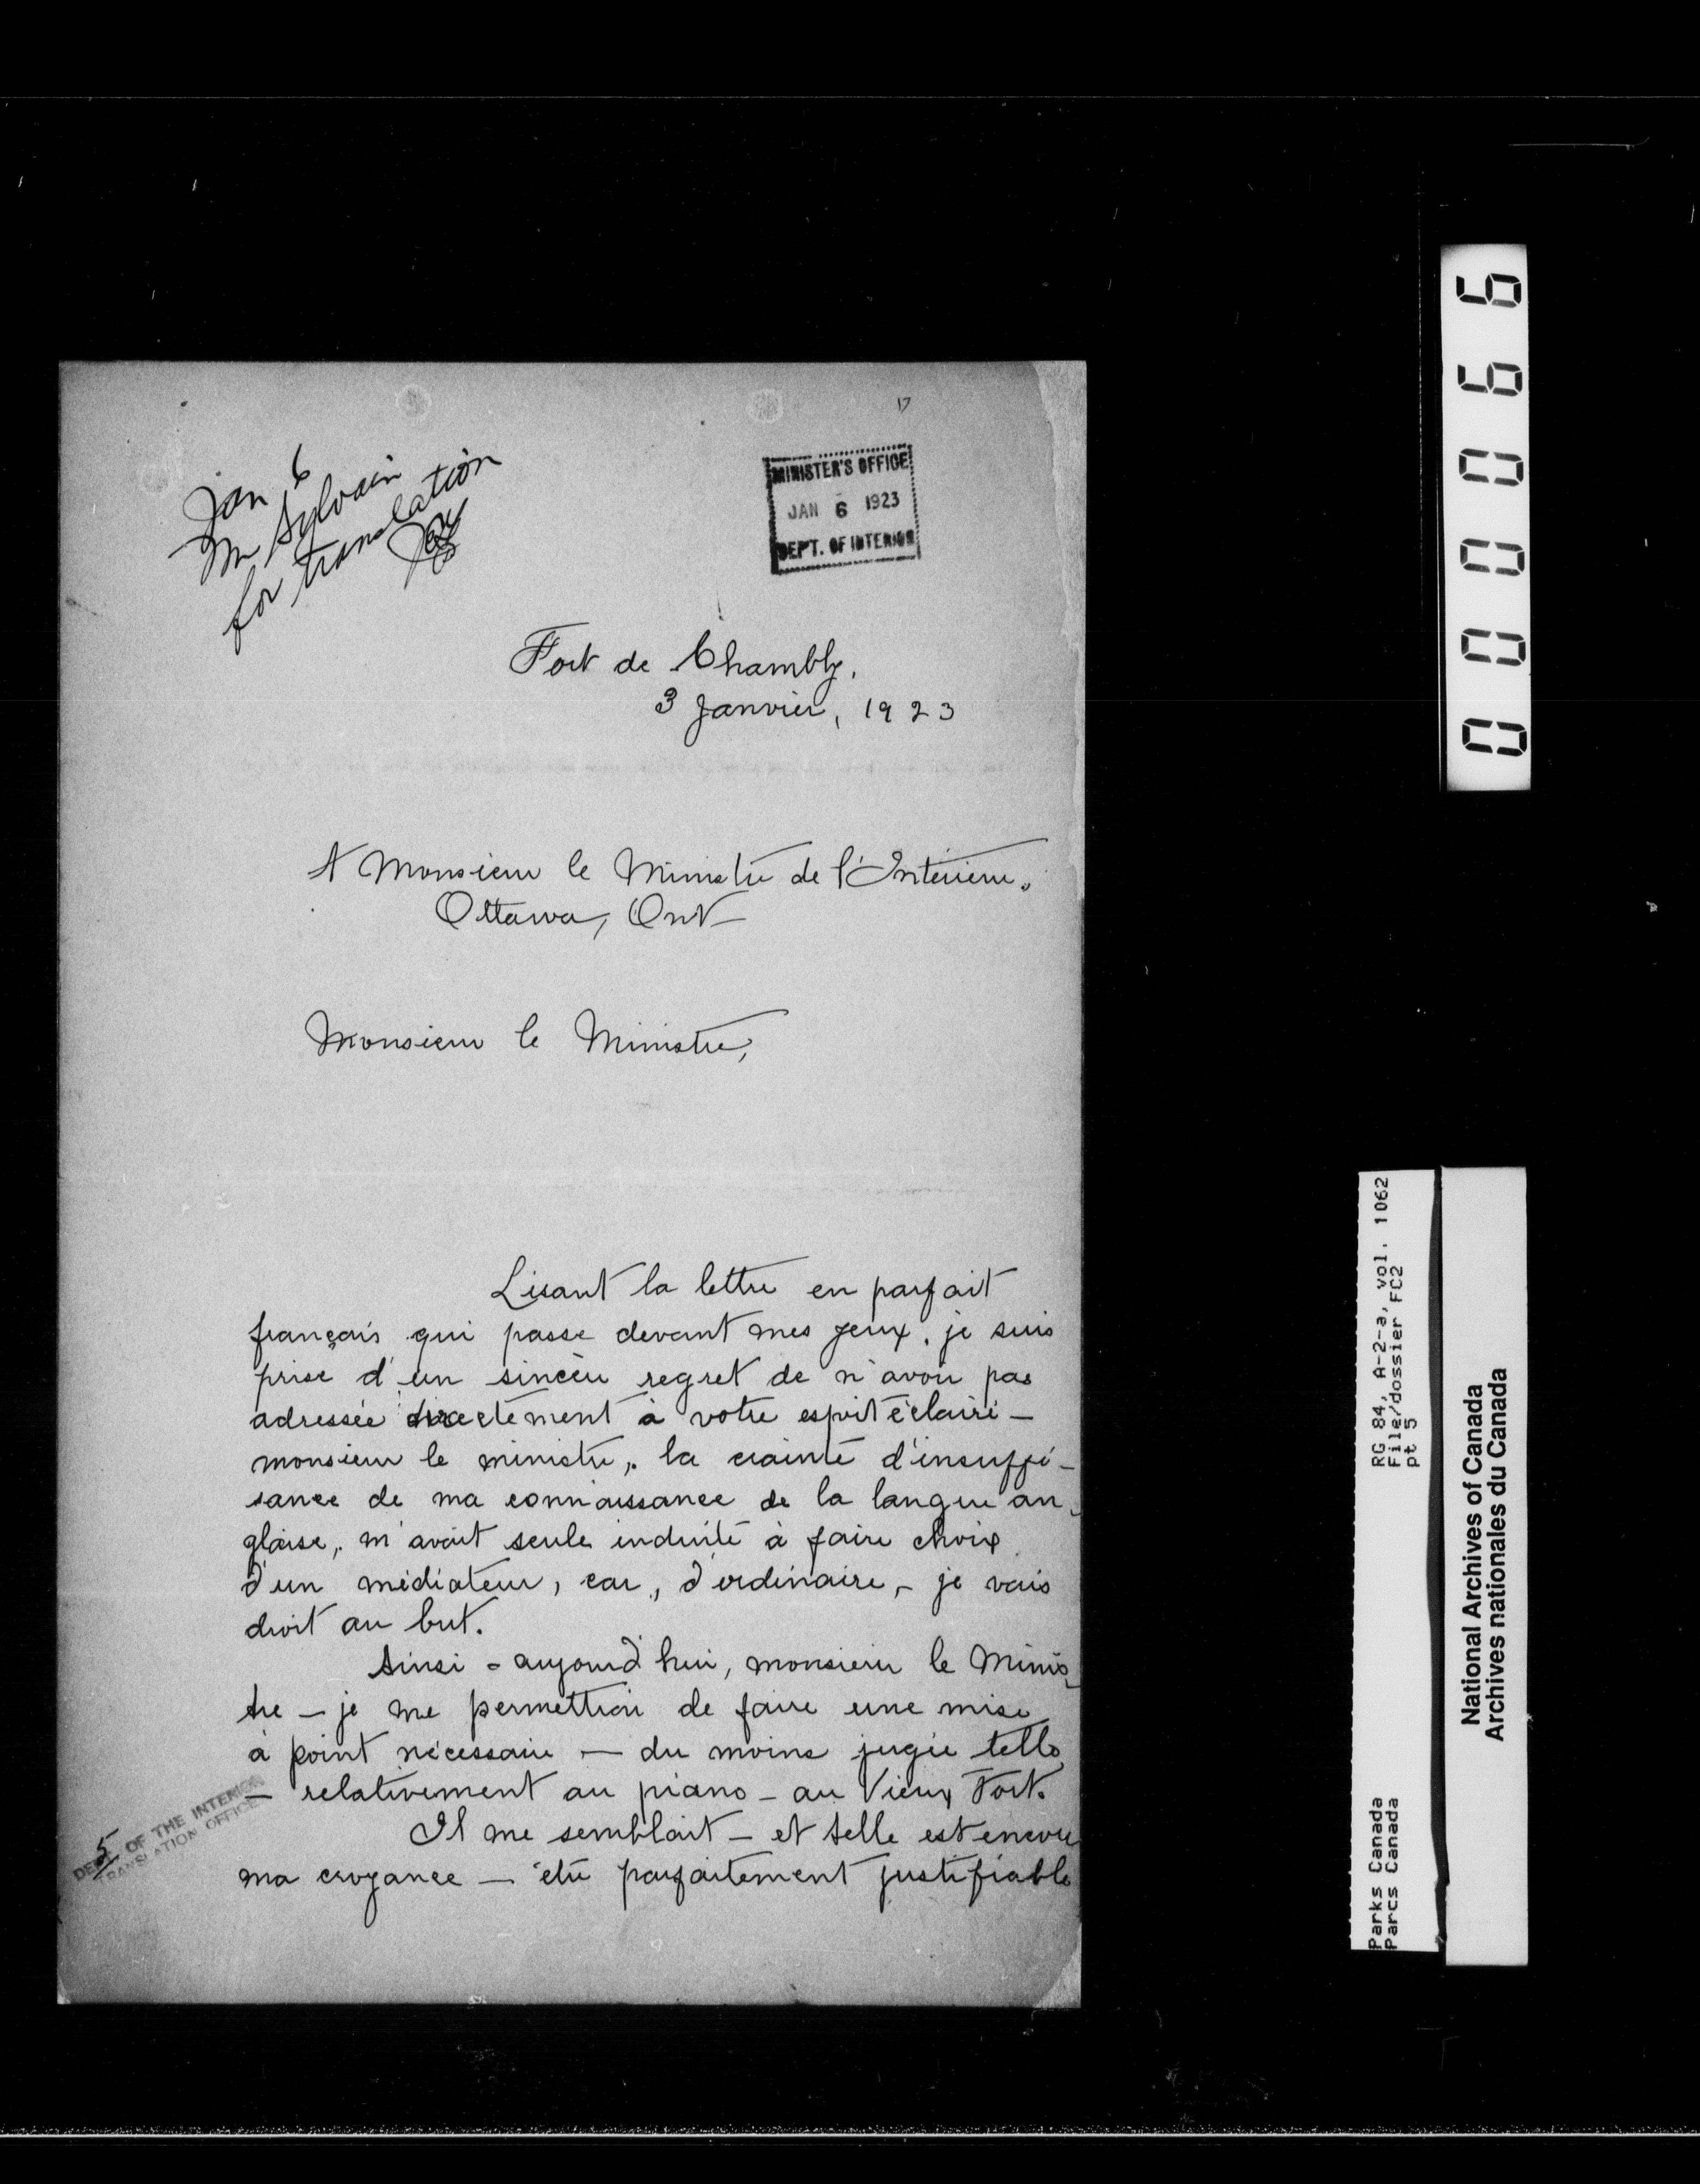 17
Jan 6
Mr Sylvain
for translation
MINISTER'S OFFICE
JAN 6 1923
DEPT. OF INTERIOR
Fort de Chambly,
3 Janvier, 1923
A Monsieur le Ministre de l'Intérieur.
Ottawa, Ont
Monsieur le Ministre,
Lisant la lettre en parfait
français qui passe devant mes yeux, je suis
prise d'un sincère regret de n'avoir pas
adressée directement à votre esprit éclairé -
monsieur le ministre, la crainte d'insuffi-
sance de ma connaissance de la langue an-
glaise, m'avait seule induite à faire choix
d'un médiateur, car, d'ordinaire, - je vais
droit au but.
Ainsi - aujourd'hui, monsieur le Minis-
tre - je me permettrai de faire une mise
à point nécessaire - du moins jugée telle
- relativement au piano - au Vieux Fort.
Il me semblait - et telle est encore
ma croyance - être parfaitement justifiable
5
DEPT. OF THE INTERIOR
TRANSLATION OFFICE
000066
RG 84, A-2-a, vol. 1062
File/dossier FC2
pt 5
Parks Canada
Parcs Canada
National Archives of Canada
Archives nationales du Canada